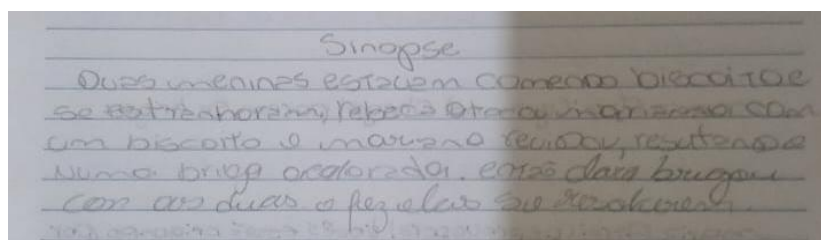 Sinopse
Duas meninas estavam comendo biscoito e
se estranhoram, rebeca atacou mariana com
um biscoito e mariana revidou, resutando
numa briga acalorada. então clara brigou
com as duas e fez elas se resolverem.